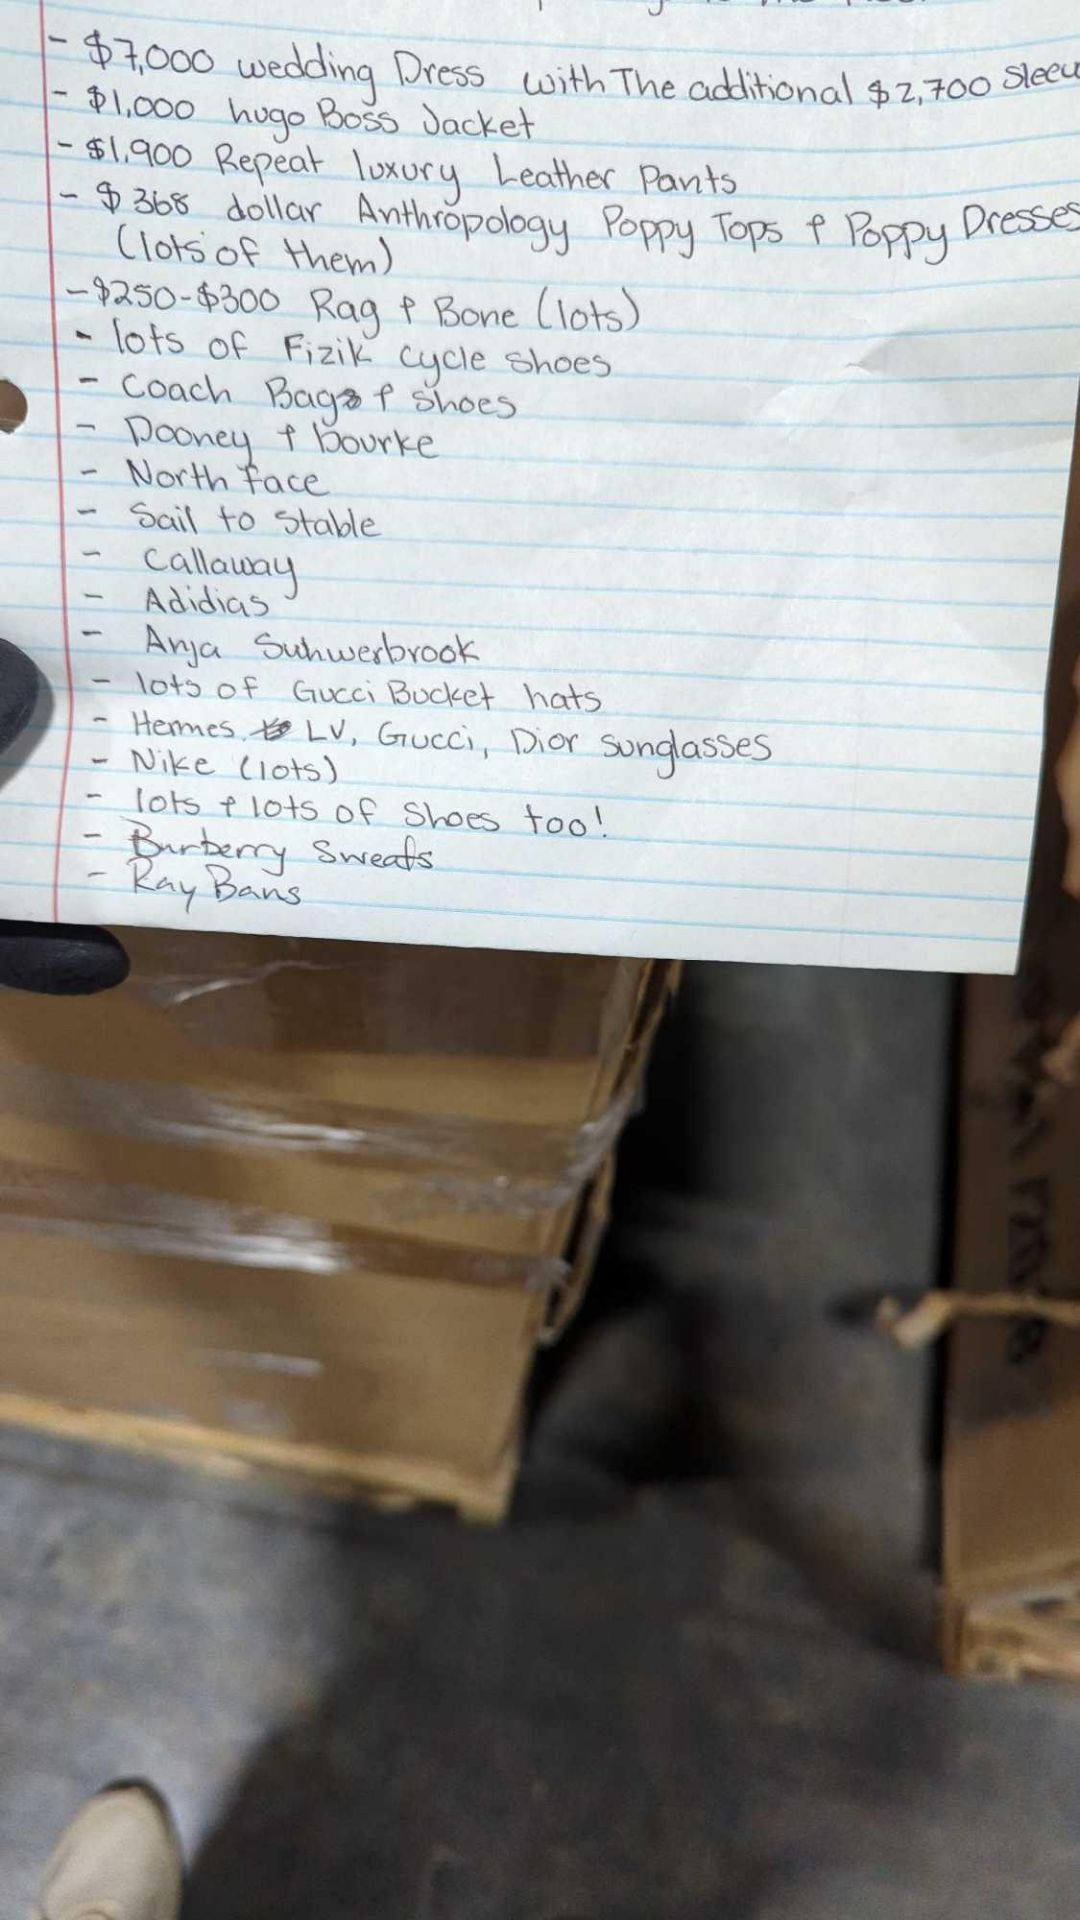 - $7,000 wedding Dress with The additional $2,700 Sleev
- $1,000 hugo Boss Jacket
- $1,900 Repeat luxury Leather Pants
- $368 dollar Anthropology Poppy Tops + Poppy Dresses
(lots of them)
- $250-$300 Rag + Bone (lots)
- lots of Fizik cycle shoes
- Coach Bags + shoes
- Dooney + bourke
- North face
- Sail to Stable
- Callaway
- Adidias
- Anja Suhwerbrook
- lots of Gucci Bucket hats
- Hermes, LV, Gucci, Dior sunglasses
- Nike (lots)
- lots + lots of Shoes too!
- Burberry Sweats
- Ray Bans